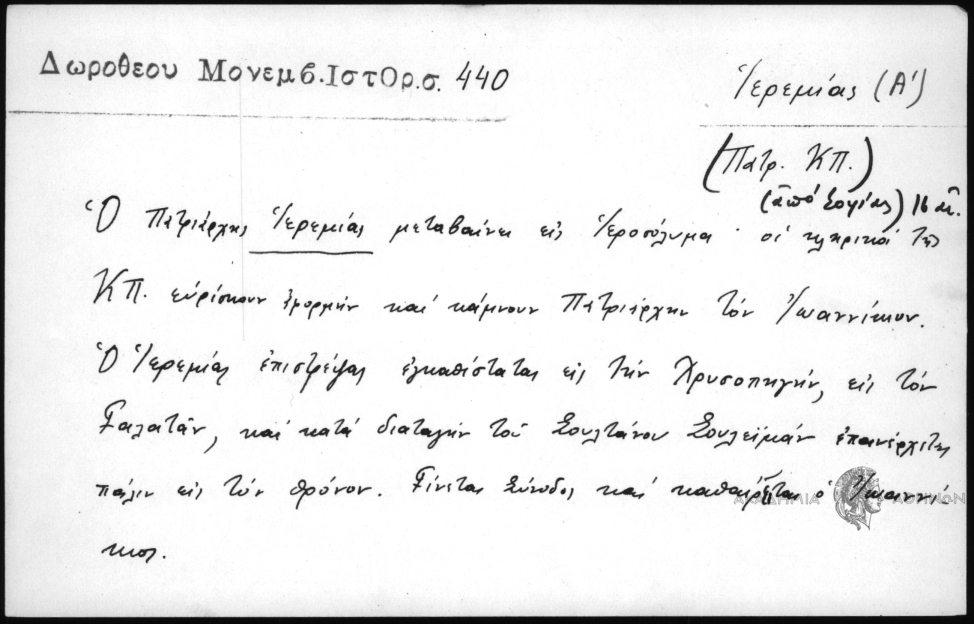 Δωροθεου Μονεμβ.ΙστΟρ.σ. 440
Ἱερεμίας (Α')
(Πατρ. ΚΠ.)
(ἀπό Σοφίας) 16 αἰ.
Ὁ Πατριάρχης Ἱερεμίας μεταβαίνει εἰς Ἱεροσόλυμα · οἱ κληρικοί τῆς
ΚΠ. εὑρίσκουν ἀφορμήν καί κάμνουν Πατριάρχην τόν Ἰωαννίκιον.
Ὁ Ἱερεμίας ἐπιστρέψας ἐγκαθίσταται εἰς τήν Χρυσοπηγήν, εἰς τόν
Γαλατᾶν, καί κατά διαταγήν τοῦ Σουλτάνου Σουλεϊμάν ἐπανέρχεται
πάλιν εἰς τόν θρόνον. Γίνεται Σύνοδος καί καθαιρεῖται ὁ Ἰωαννί-
κιος.
ΑΚΑΔΗΜΙΑ ΑΘΗΝΩΝ